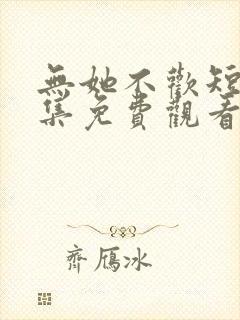 無她不歡短
集免費觀看
齊鴈冰